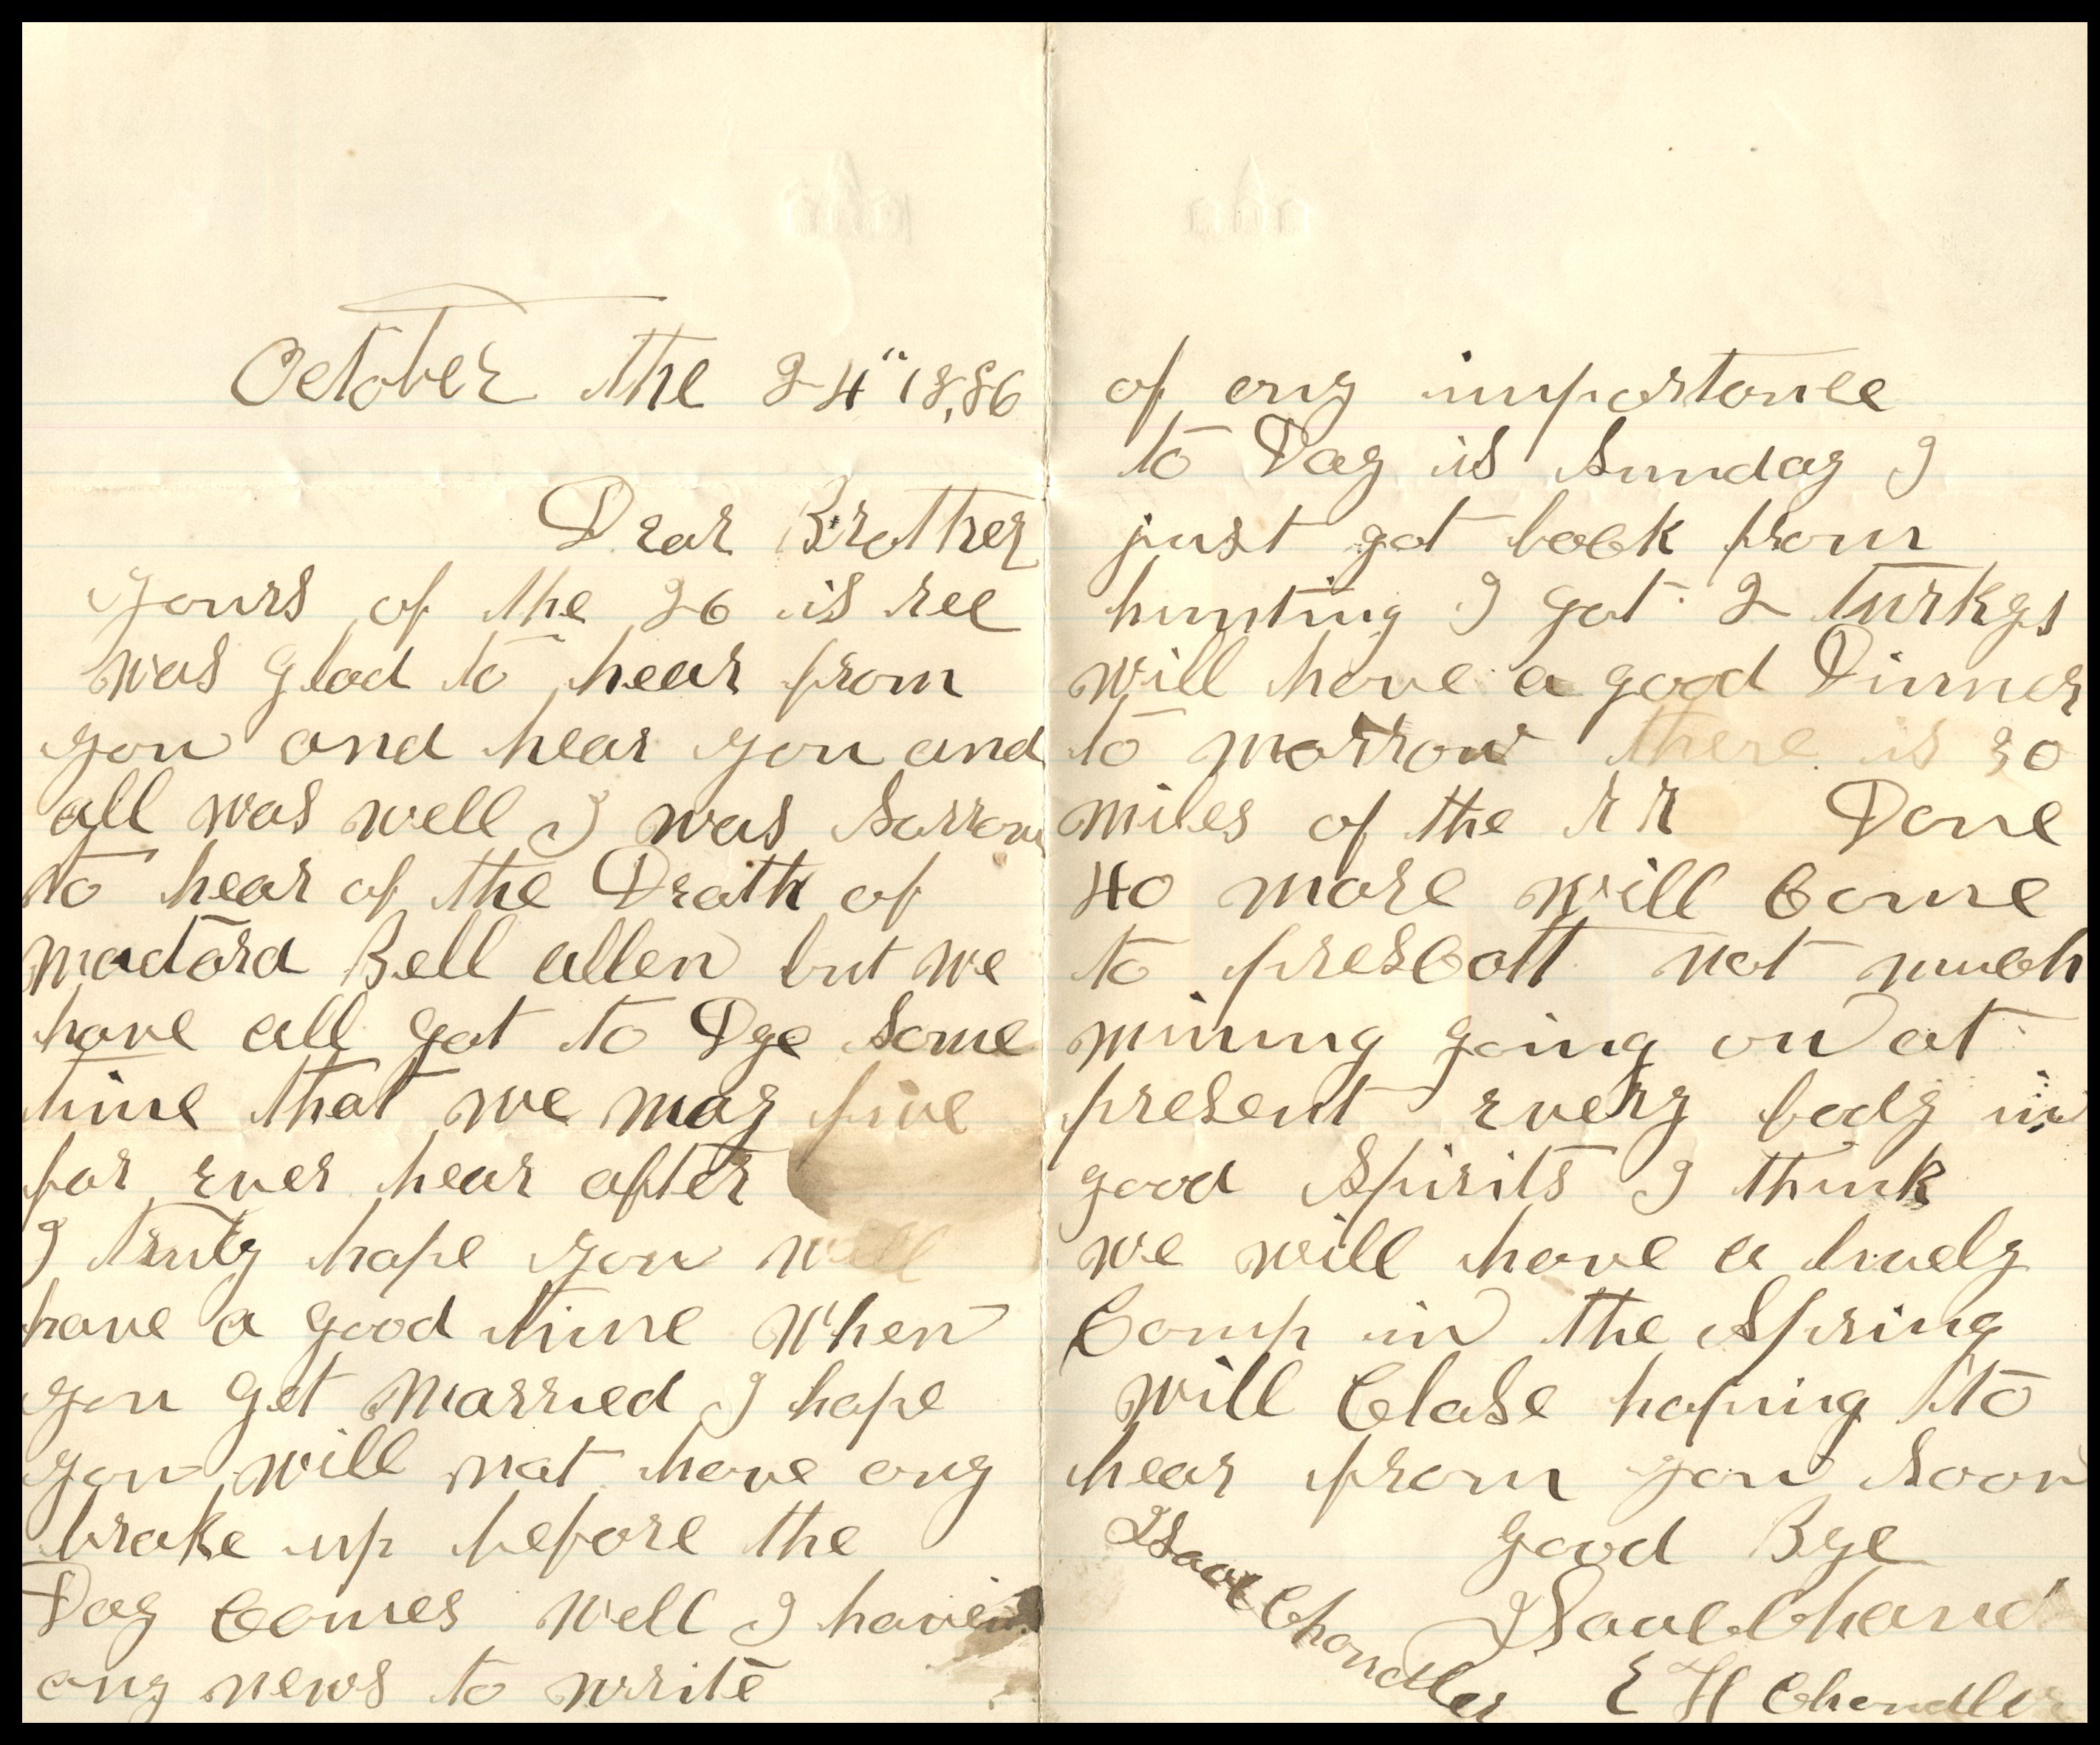 October the 24" 18,86
Dear Brother
yours of the 26 is rec
was glad to hear from
you and hear you and
all was well I was Sorrow
to hear of the Death of
Bell allen but we
have all got to Dye Some
time that we may live
for ever hear after
I truly hope you will
have a good time when
you get married I hope
you will not have any
brake up before the
Day Comes well I haven
any news to write
of any importance
to Day is Sunday I
just got back from
hunting I got 2 turkys
will have a good Dinner
to morrow there is 30
miles of the R R Done
40 more will Come
to prescott not much
mining going on at
present every body in
good Spirits I think
we will have a lively
Camp in the Spring
will Close hoping to
hear from you Soon
good Bye
Isaac Chand
E H Chandler
Isaac Chandler